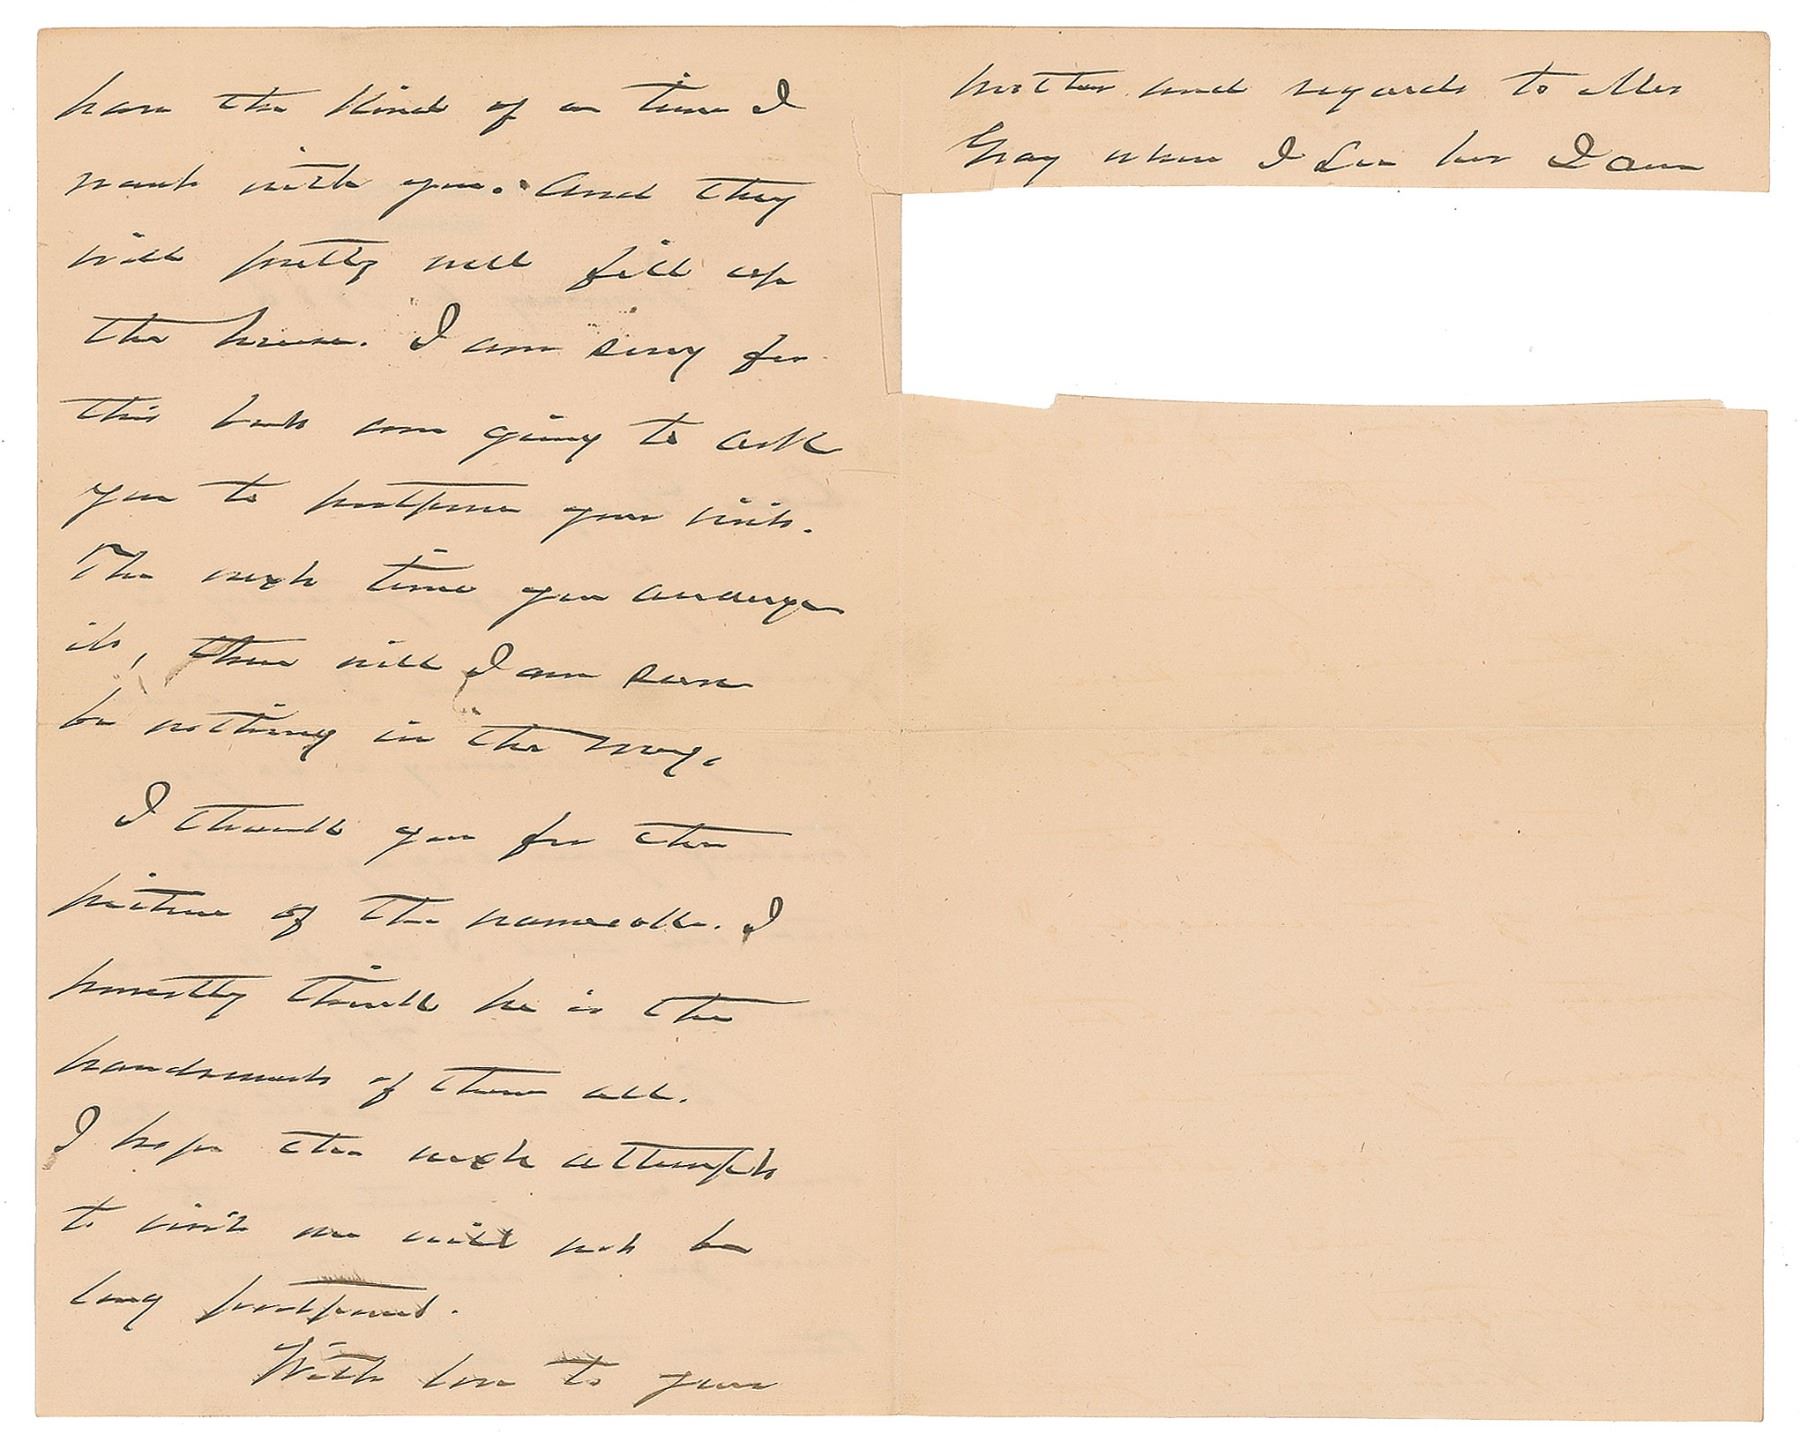 have the kind of a time I
want with you. And they
will pretty well fill up
the house. I am sorry for
this but am going to ask
you to postpone your visit.
The next time you arrange
it, there will I am sure
be nothing in the way.
I thank you for the
picture of the namesake. I
honestly think he is the
handsomest of them all.
I hope the next attempt
to visit me will not be
long postponed.
With love to your
mother and regards to Mrs
Gray when I see her I am